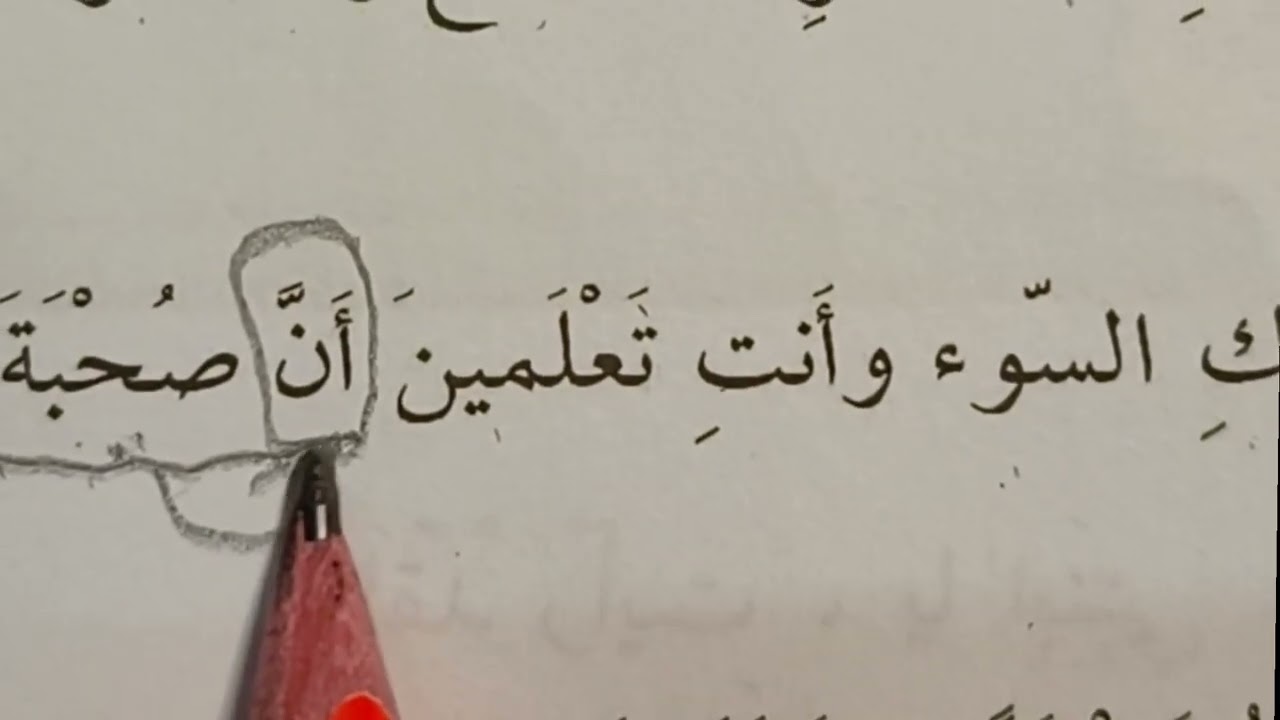 السّوء وأَنتِ تَعْلَمينَ أَنَّ صُحْبَةَ